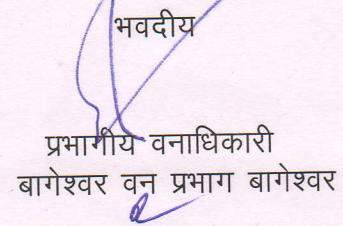 भवदीय
प्रभागीय वनाधिकारी
बागेश्वर वन प्रभाग बागेश्वर